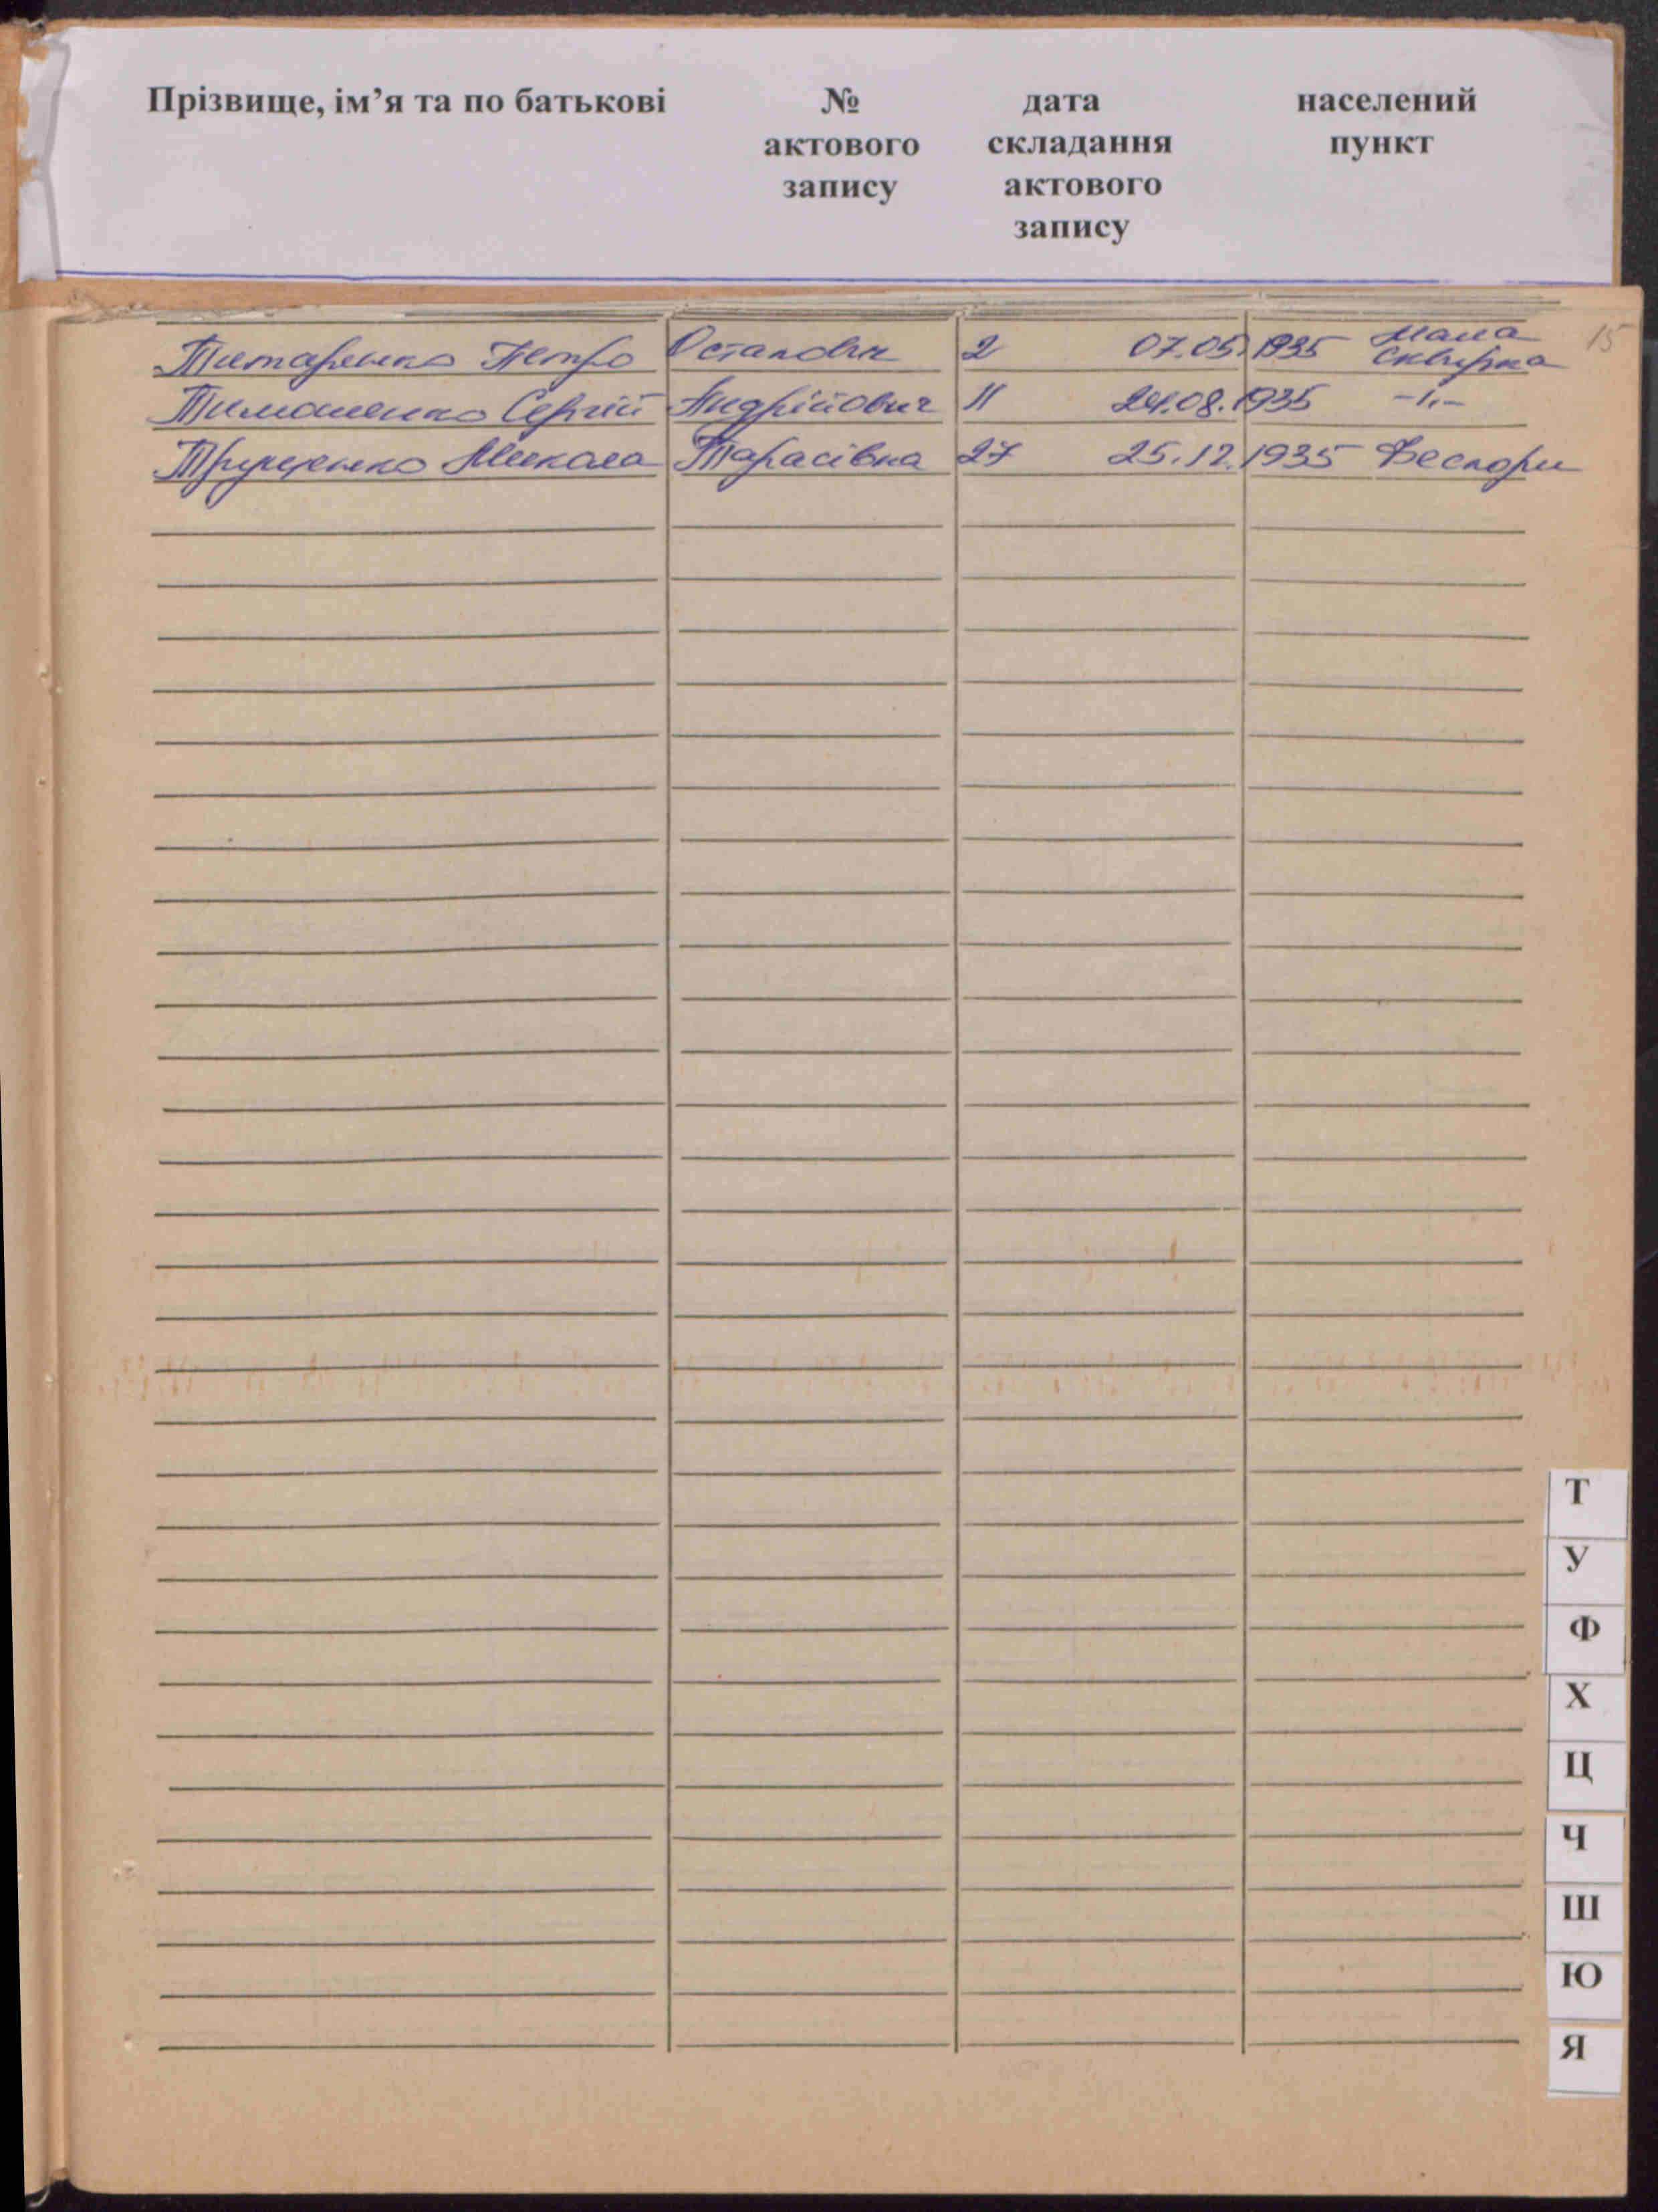 Прізвище, ім’я та по батькові № дата населений
актового складання пункт
запису актового
запису
15
Титаренко Петро Остапович 2 07.05.1935 Мала Сквирка
Тимошенко Сергій Андрійович 11 24.08.1935 -"-
Трущенко Микола Тарасівна 27 25.12.1935
Т
У
Ф
Х
Ц
Ч
Ш
Ю
Я